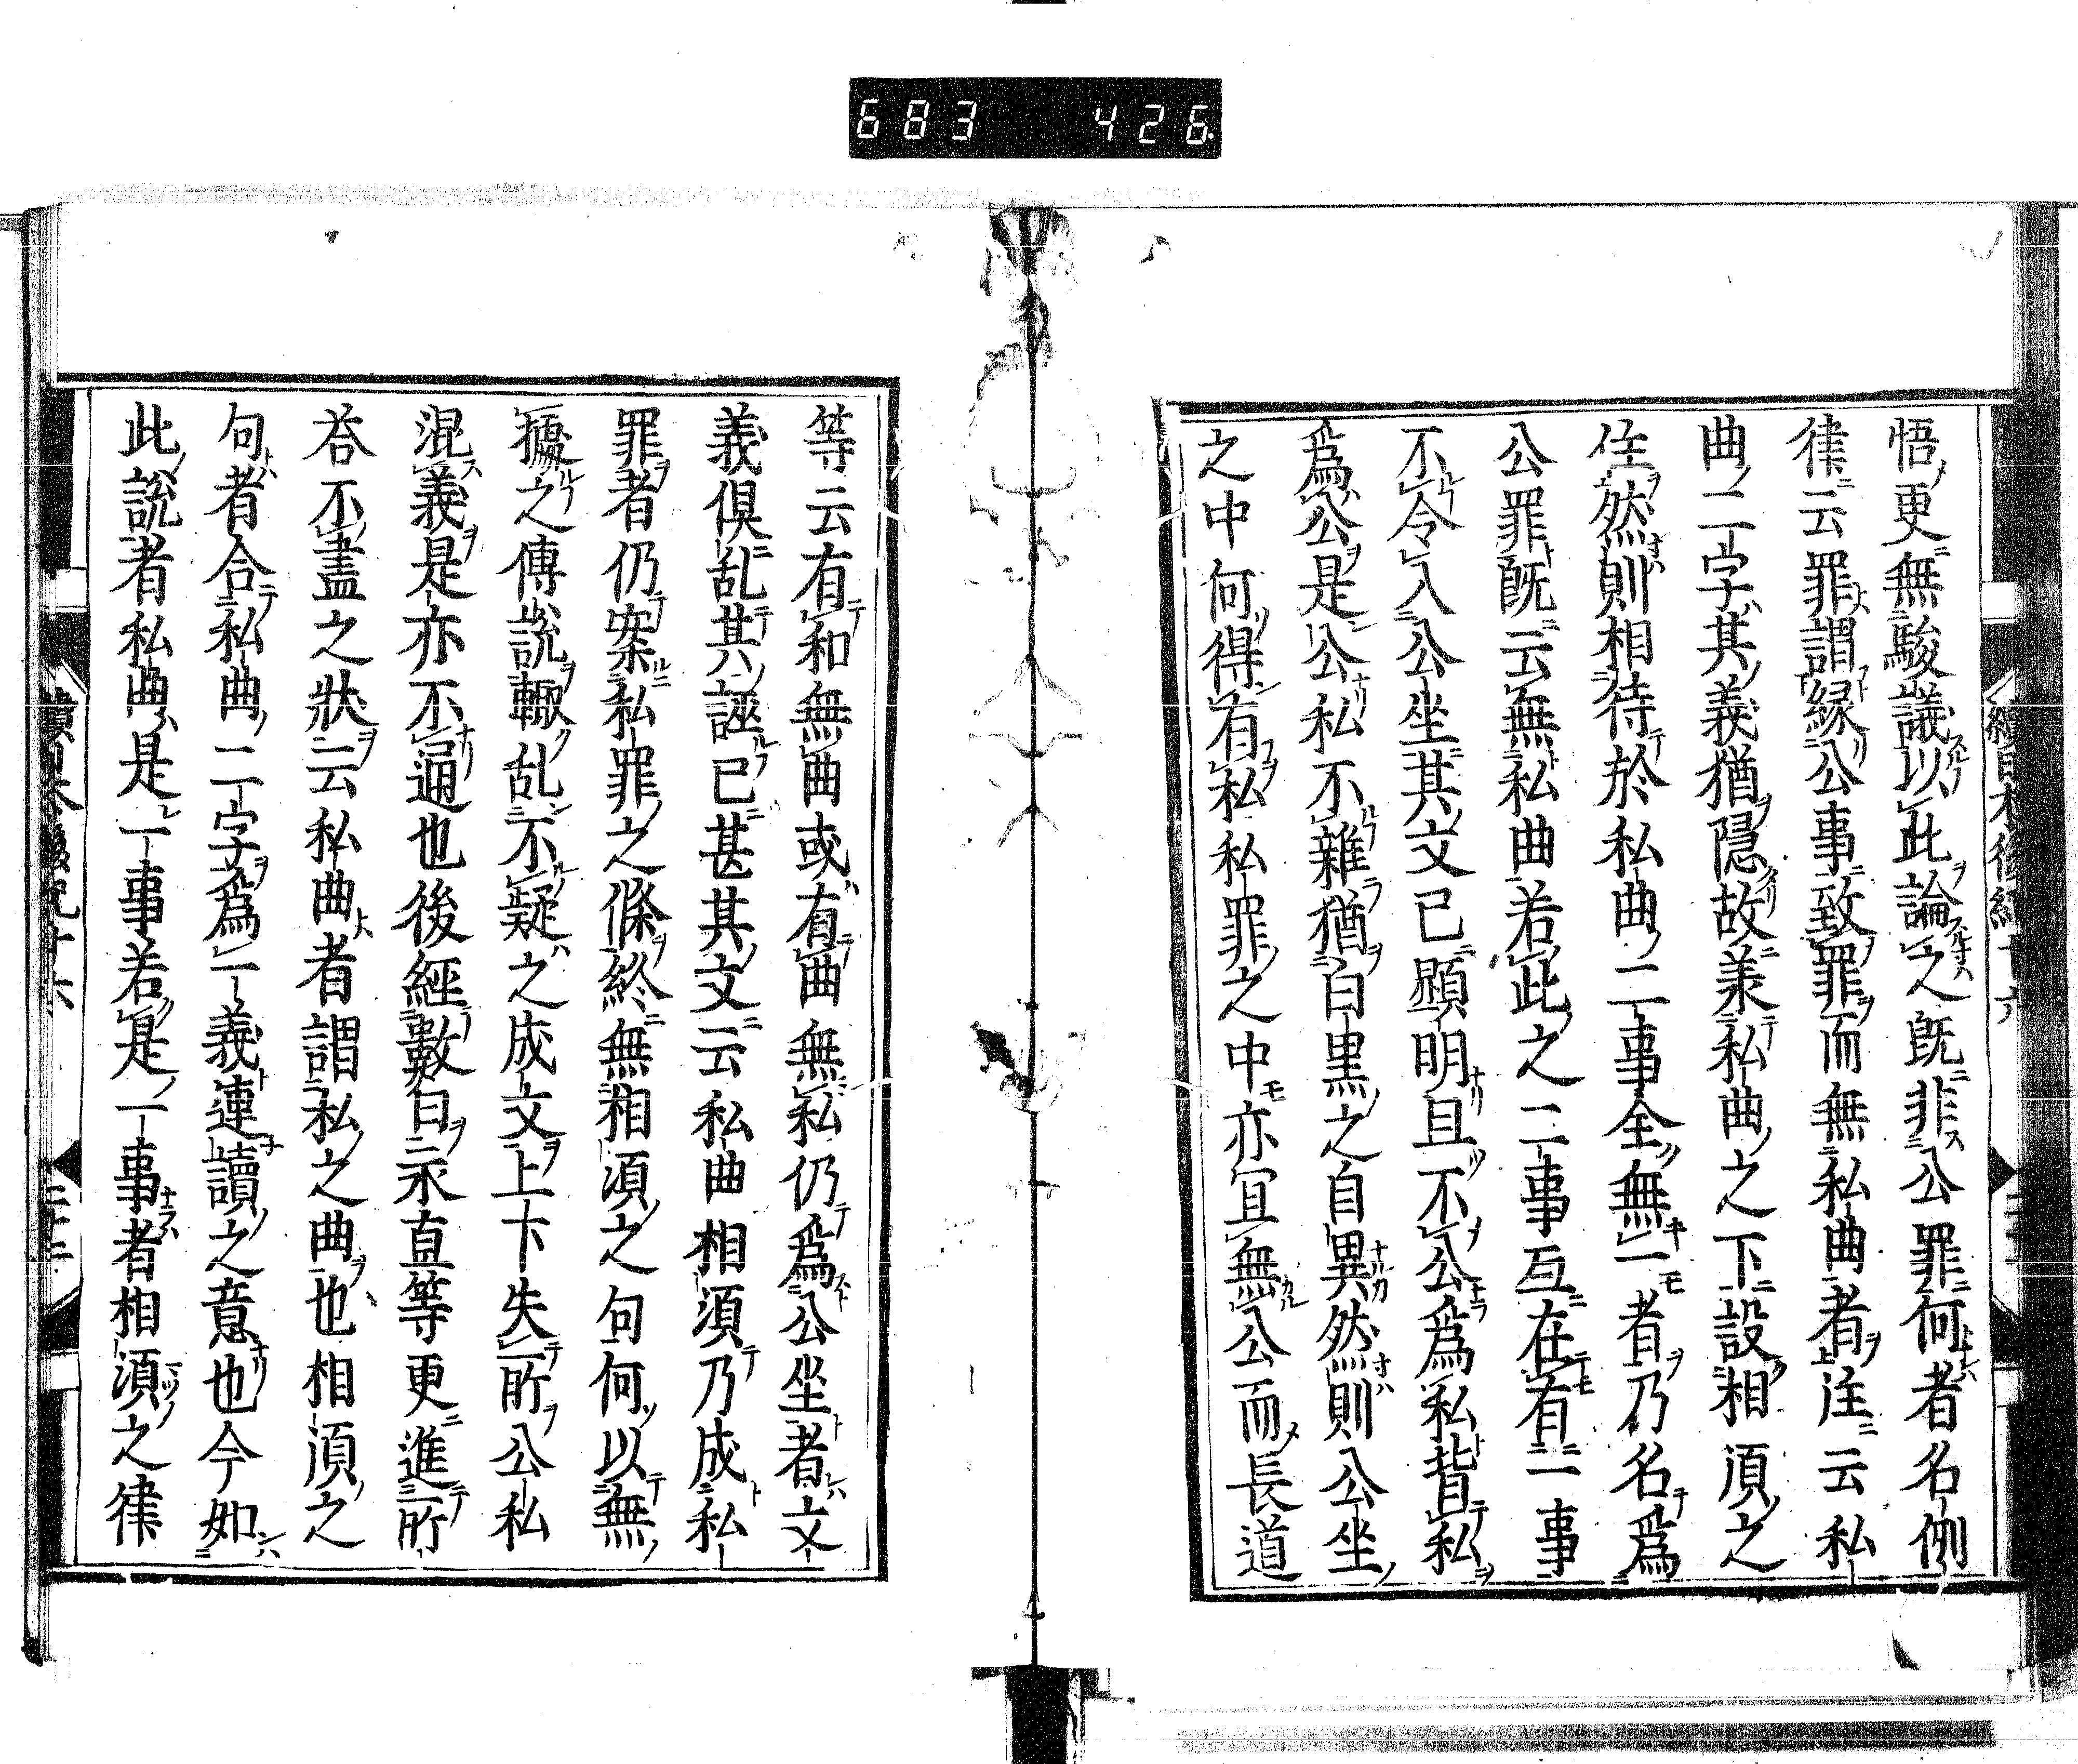 683 426
續日本後紀十六
悟更無駿議以此論之既非公罪何者名例
律云罪謂緣公事致罪而無私曲者注云私
曲二字其義猶隱故兼私曲之下設相湏之
住然則相待於私曲二事全無一者乃名為
公罪既云無私曲若此之二事互在有一事
不令入公坐其文已顯明且不公為私背私
為公是公私不雜猶白黒之自異然則公坐
之中何得有私私罪之中亦冝無公而長道
等云有和無曲或有曲無私仍為公坐者文
義俱乱其誣已甚其文云私曲相湏乃成私
罪者仍案私罪之條終無相湏之句何以無
據之傳說輙乱不疑之成文上下失所公私
混義是亦不通也後經數日永直等更進所
荅不盡之狀云私曲者謂私之曲也相湏之
句者合私曲二字為一義連讀之意也今如
此說者私曲是一事若是一事者相湏之律